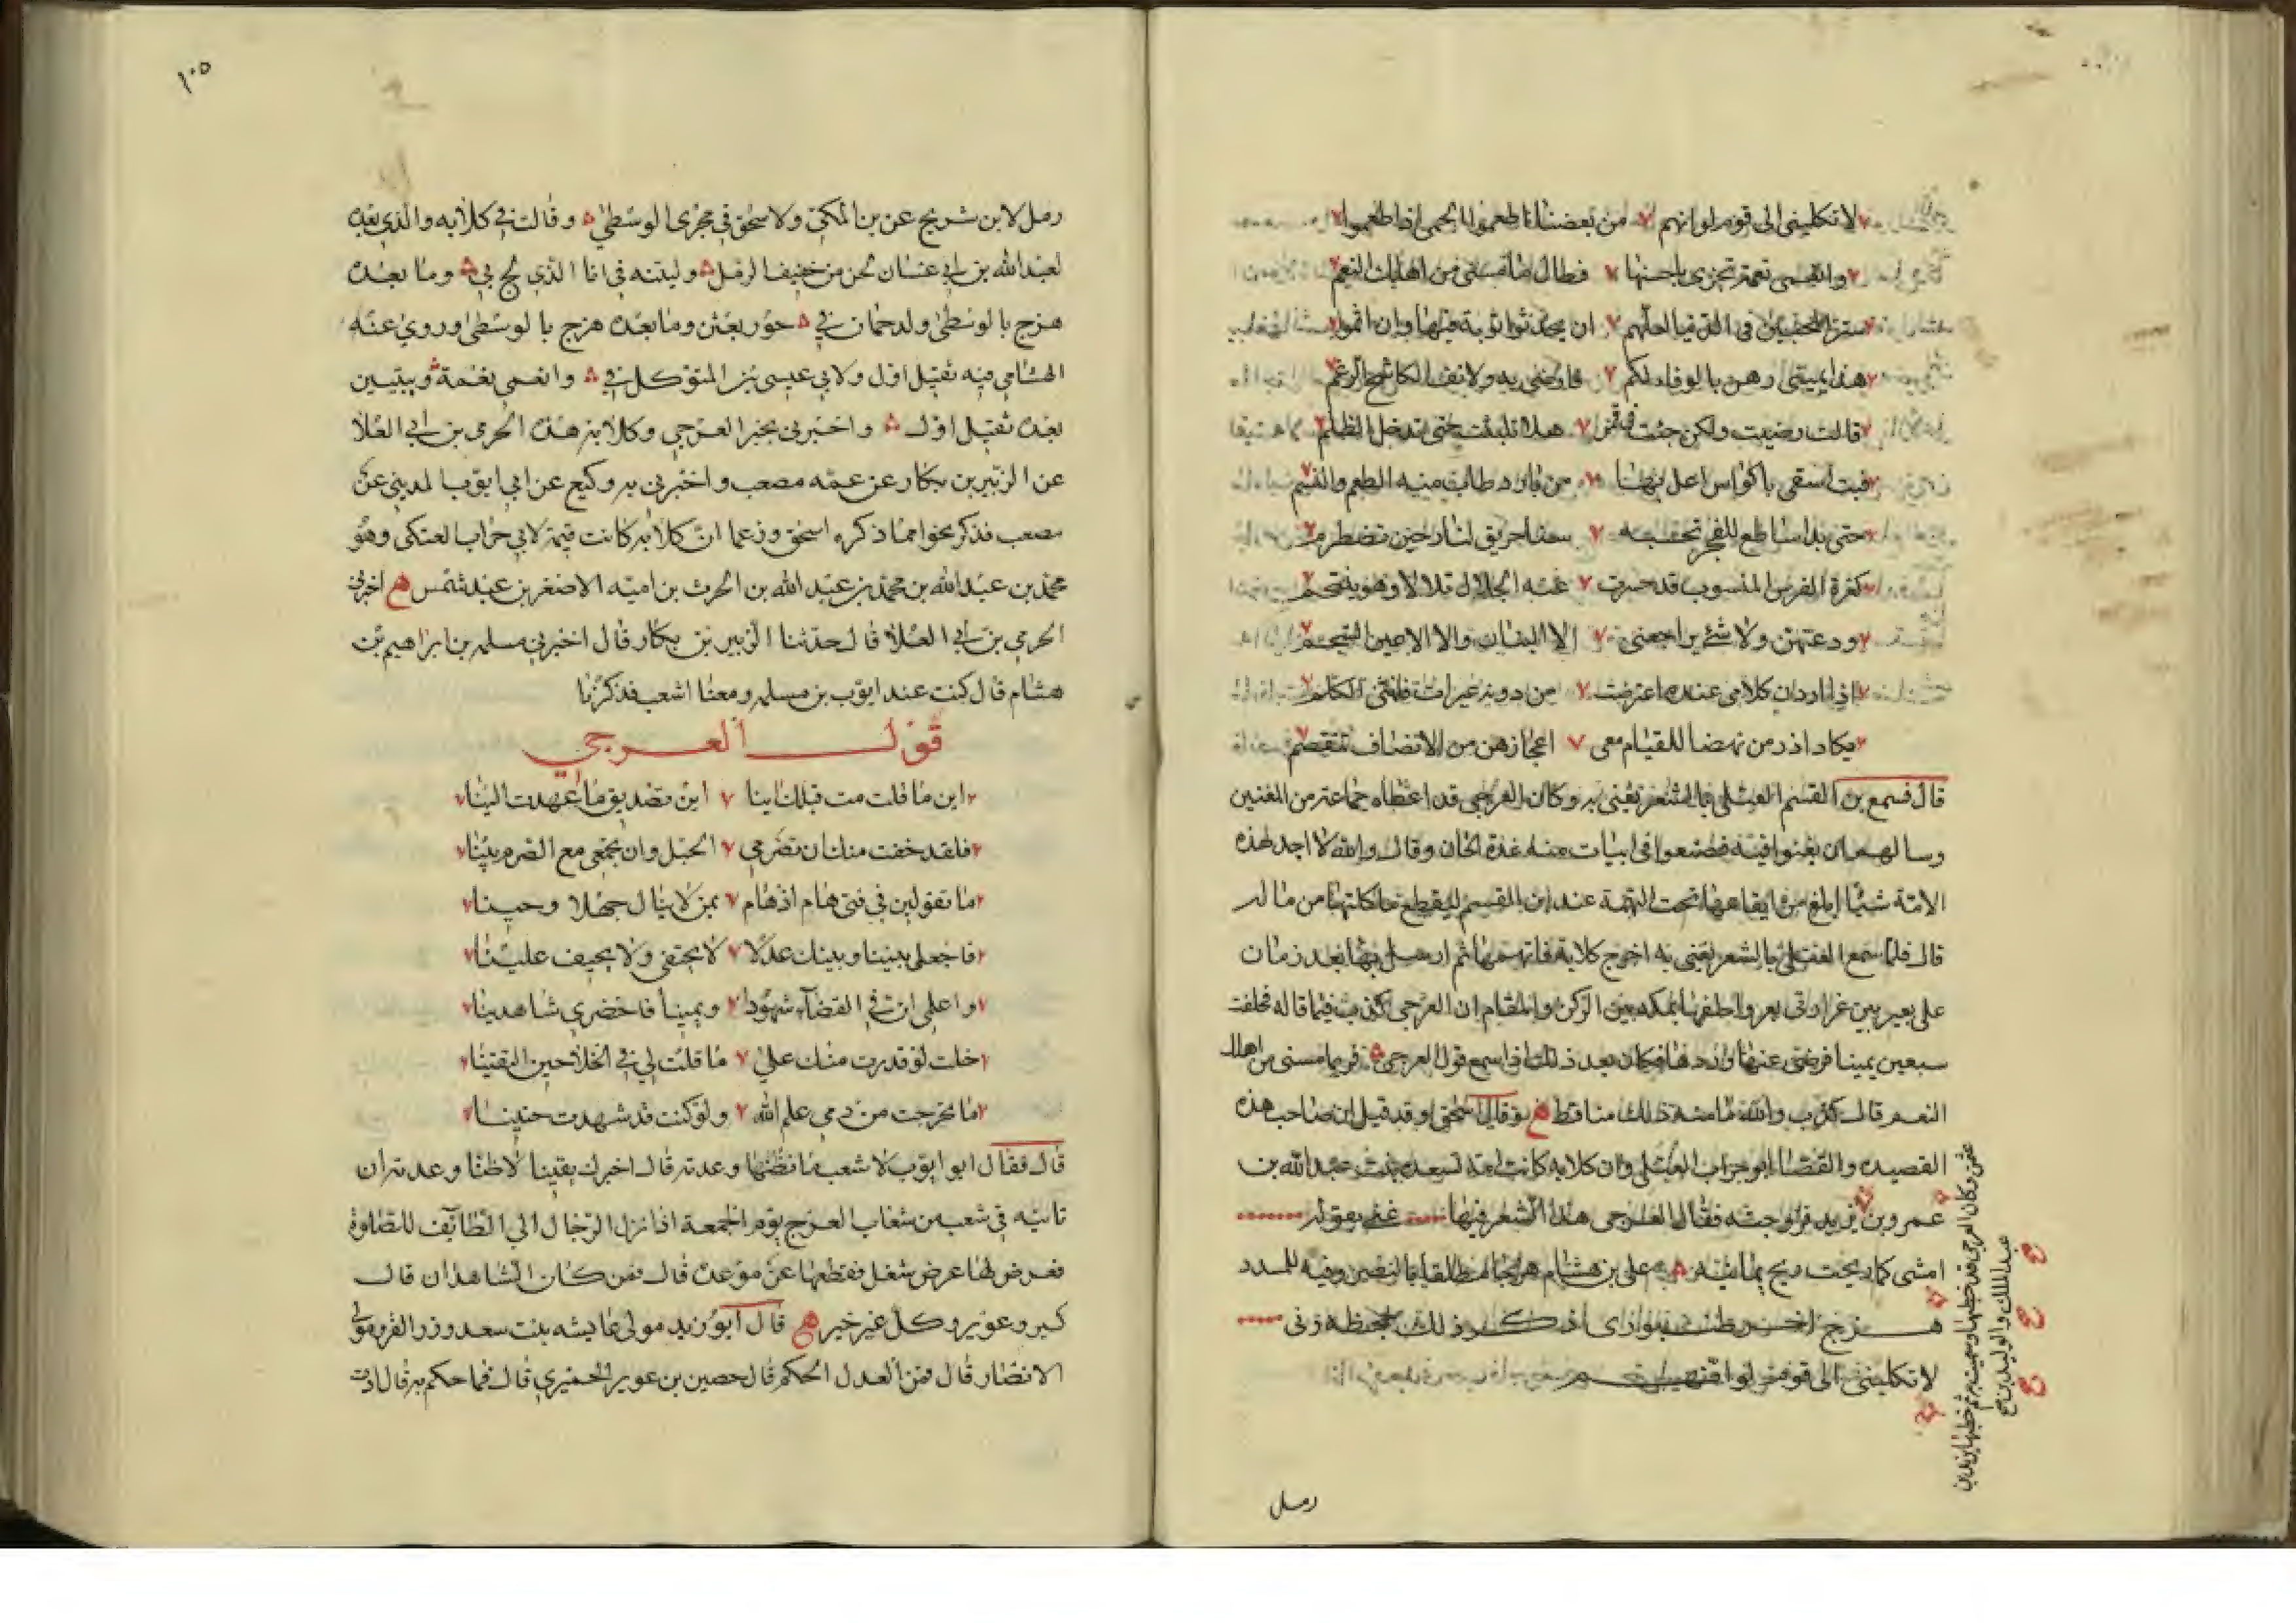 لا تكليني الى قوم لو انهم من بغضنا اطعموا لحمى اذا طعموا
وانعمى نعمة تجزى باحسنها فطال ما مسنى من اهلك النعم
ستر المحبين فى الدنيا لعلهم ان يحدثوا توبة فيها وان اثموا
هذا يمينى رهن بالوفاء لكم فارضى به ولانف الكاشح الرغم
قالت رضيت ولكن جئت فى قمر هلا تلبثت حتى تدخل الظلم
فبت اسقى باكواس اعل بها من بارد طاب منه الطعم والنسم
حتى بدا ساطع للفجر تحسبه سنا حريق لنار حين تضطرم
كغرة الفرس المنسوب قد حسرت عنه الجلال تلالا وهو يلتجم
ودعتهن ولا شئ يراجعنى الا البنان والا الاعين السجم
اذا اردن كلامى عنده اعترضت من دونه عبرات فانثنى الكلم
يكاد اذ رمن نهضا للقيام معى اعجازهن من الانصاف تنقصم
قال فسمع بن القسم العبلى بالشعر يغنى به وكان العرجى قد اعطاه جماعة من المغنين
وسالهم ان يغنوا فيه فصنعوا فى ابيات منه عدة الحان وقال والله لا اجد لهذه
الامة شيئا ابلغ من ايقاعها تحت التهمة عند ابن القسم ليقطع ماكلتها من ماله
قال فلما سمع العبلى بالشعر يغنى به اخرج كلابة فاتهمها ثم ارسل بها بعد زمان
على بعير بين غرارتى بعر واحلفها بمكه بين الركن والمقام ان العرجى كذب فيما قاله فحلفت
سبعين يمينا فرضى عنها وردها فكان بعد ذلك اذا سمع قول العرجى فربما مسنى من اهلك
النعم قال كذب والله ما مسه ذلك منا قط وقال اسحق وقد قيل ان صاحب هذه
القصيده والقصا ابو حراب العبلى وان كلابه كانت امة لسعده بنت عبد الله بن
عمرو بن فقال العرجى هذا الشعر فيها غنى بقوله
امشى كما حركت ريح يمانيه على بن هشام هزجا مطلقا بالبنصر وفيه للمسدود
هزج اخر
لا تكلينى الى قوم لو انهم
عثمن وكان العرجى قد خطبها وسميت به ثم خطبها يزيد بن
عبد الملك والوليد بن يزيد
رمل
١٠٥
رمل لابن شريج عن بن المكى ولاسحق فى مجرى الوسطى وقالت كلابه والذى بعده
لعبد الله بن ابى غسان لحن من خفيف الرمل وليتنه فى انا الذى لج بى وما بعده
هزج بالوسطى ولدحمان فى حور بعثن وما بعده هزج بالوسطى وروى عنه
الهشامى فيه ثقيل اول ولابى عيسى بن المتوكل فى وانعمى نعمة وبيتين
بعده ثقيل اول واخبرنى بخبر العرجى وكلابه هذه الحرمى بن ابى العلا
عن الزبير بن بكار عن عمه مصعب واخبرنى به وكيع عن ابى ايوب المدينى عن
مصعب فذكر نحوا مما ذكره اسحق وزعما ان كلابه كانت قيمة لابى حراب العتكى وهو
محمد بن عبد الله بن محمد بن عبد الله بن الحرث بن اميه الاصغر بن عبد شمس اخبرنى
الحرمى بن ابى العلا قال حدثنا الزبير بن بكار قال اخبرنى مسلمه بن ابراهيم بن
هشام قال كنت عند ايوب بن مسلمه ومعنا اشعب فذكرنا
قول العرجي
اين ما قلت مت قبلك اينا اين تصديق ما عهدت الينا
فلقد خفت منك ان تصرمى الحبل وان تجمعى مع الصرم بينا
ما تقولين فى فتى هام اذ هام بمن لا ينال جهلا وحينا
فاجعلى بيننا وبينك عدلا لا يحيف علينا
واعلمى ان فى القضآء شهودا ويمينا فاحضرى شاهدينا
خلت لو قدرت منك على ما قلت لى فى الخلا حين التقينا
ما تحرجت من دمى علم الله ولو كنت قد شهدت حنينا
قال فقال ابو ايوب لاشعب ما تظنها وعدته قال اخبرك يقينا لا ظنا وعدته ان
تاتيه فى شعب من شعاب العرج يوم الجمعة اذا نزل الرجال الى الطايف للصلوة
فعرض لها عرض شغل فقطعها عن موعده قال فمن كان الشاهدان قال
كسير وعوير وكل غير خير قال ابو زيد مولى عايشه بنت سعد وزر الفرو مولى
الانصار قال فمن العدل الحكم قال حصين بن عوير الحميرى قال فما حكم به قال ادت